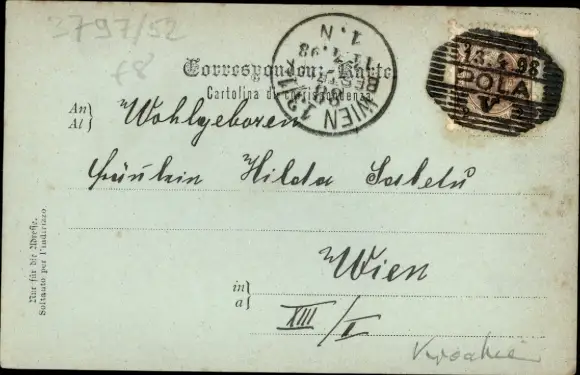 3797/52
f8
Correspondenz-Karte
Cartolina di corrispondenza
WIEN 13/1
1. N
98
13. 4 98
POLA
An}
Al}
Wohlgeboren
Fräulein Hilda
Wien
in}
a}
XIII/I
Nur für die Adresse.
Soltanto per l'indirizzo